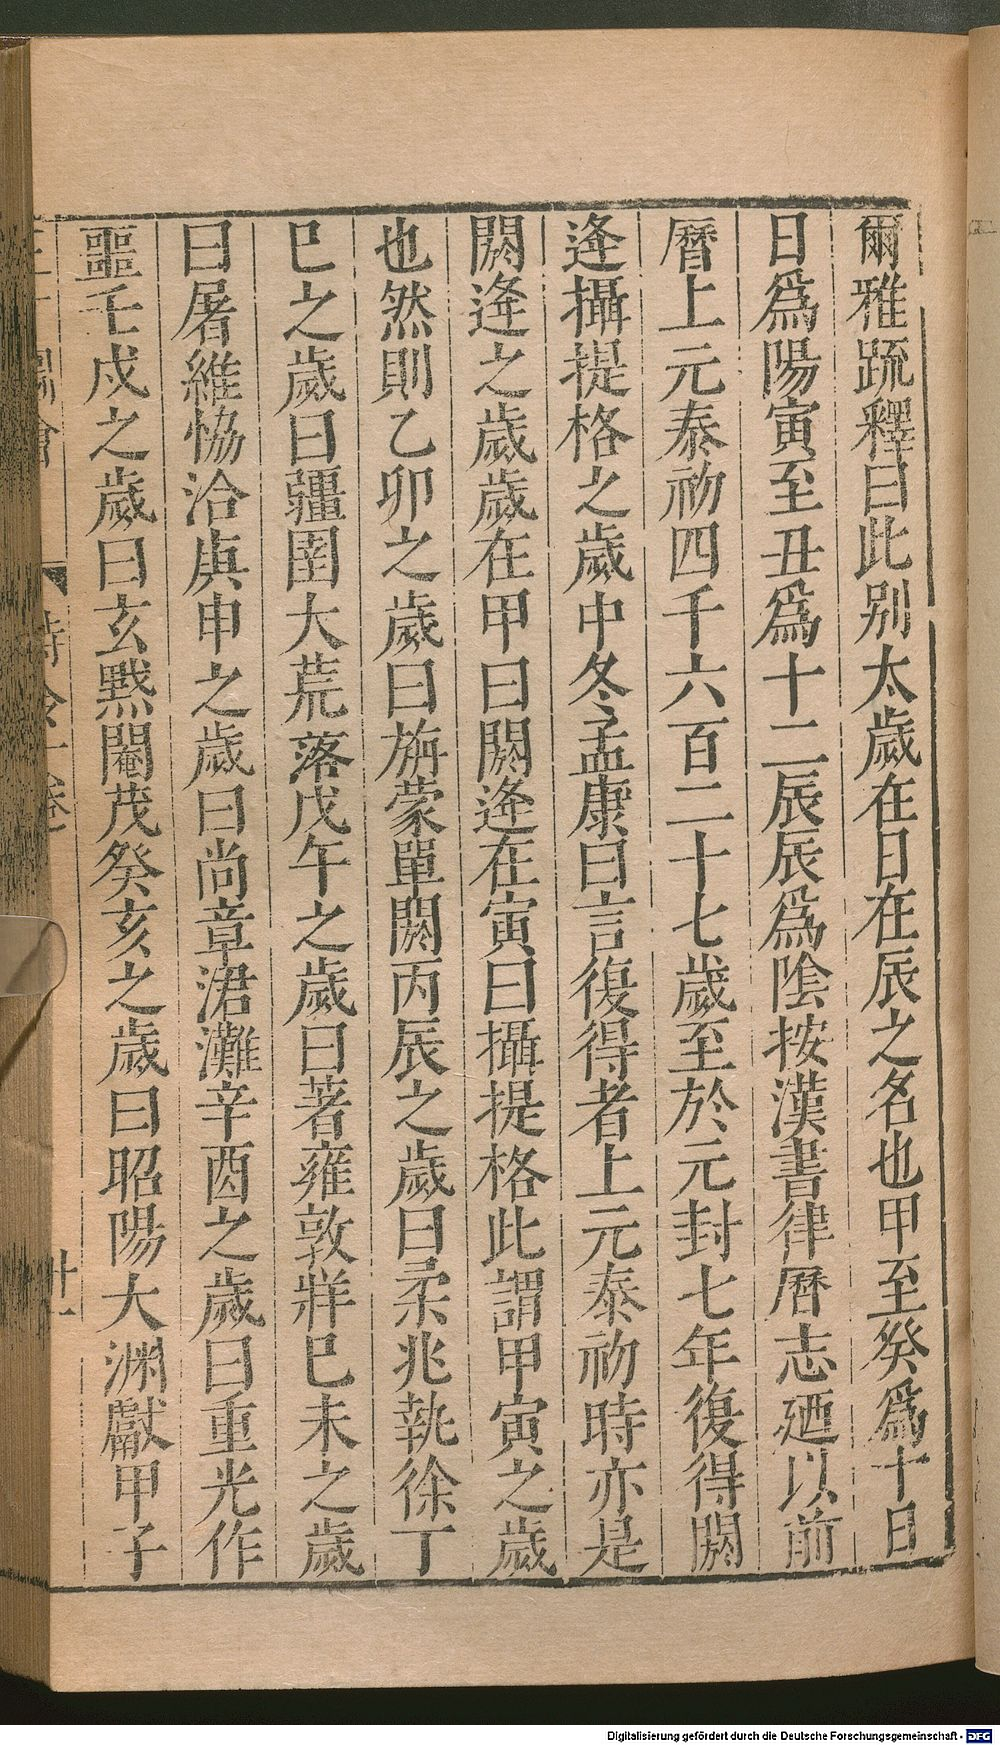 爾雅疏釋曰此别太歲在日在辰之名也甲至癸爲十日
日爲陽寅至丑爲十二辰辰爲陰按漢書律曆志廼以前
曆上元泰初四千六百二十七歲至於元封七年復得閼
逢攝提格之歲中冬孟康曰言復得者上元泰初時亦是
閼逢之歲歲在甲曰閼逢在寅曰攝提格此謂甲寅之歲
也然則乙卯之歲曰旃蒙單閼丙辰之歲曰柔兆執徐丁
巳之歲曰疆圉大荒落戊午之歲曰著雍敦牂巳未之歲
曰屠維恊洽庚申之歲曰尚章涒灘辛酉之歲曰重光作
噩壬戌之歲曰玄黓閹茂癸亥之歲曰昭陽大淵獻甲子
時令一卷 廿一
Digitalisierung gefördert durch die Deutsche Forschungsgemeinschaft - DFG